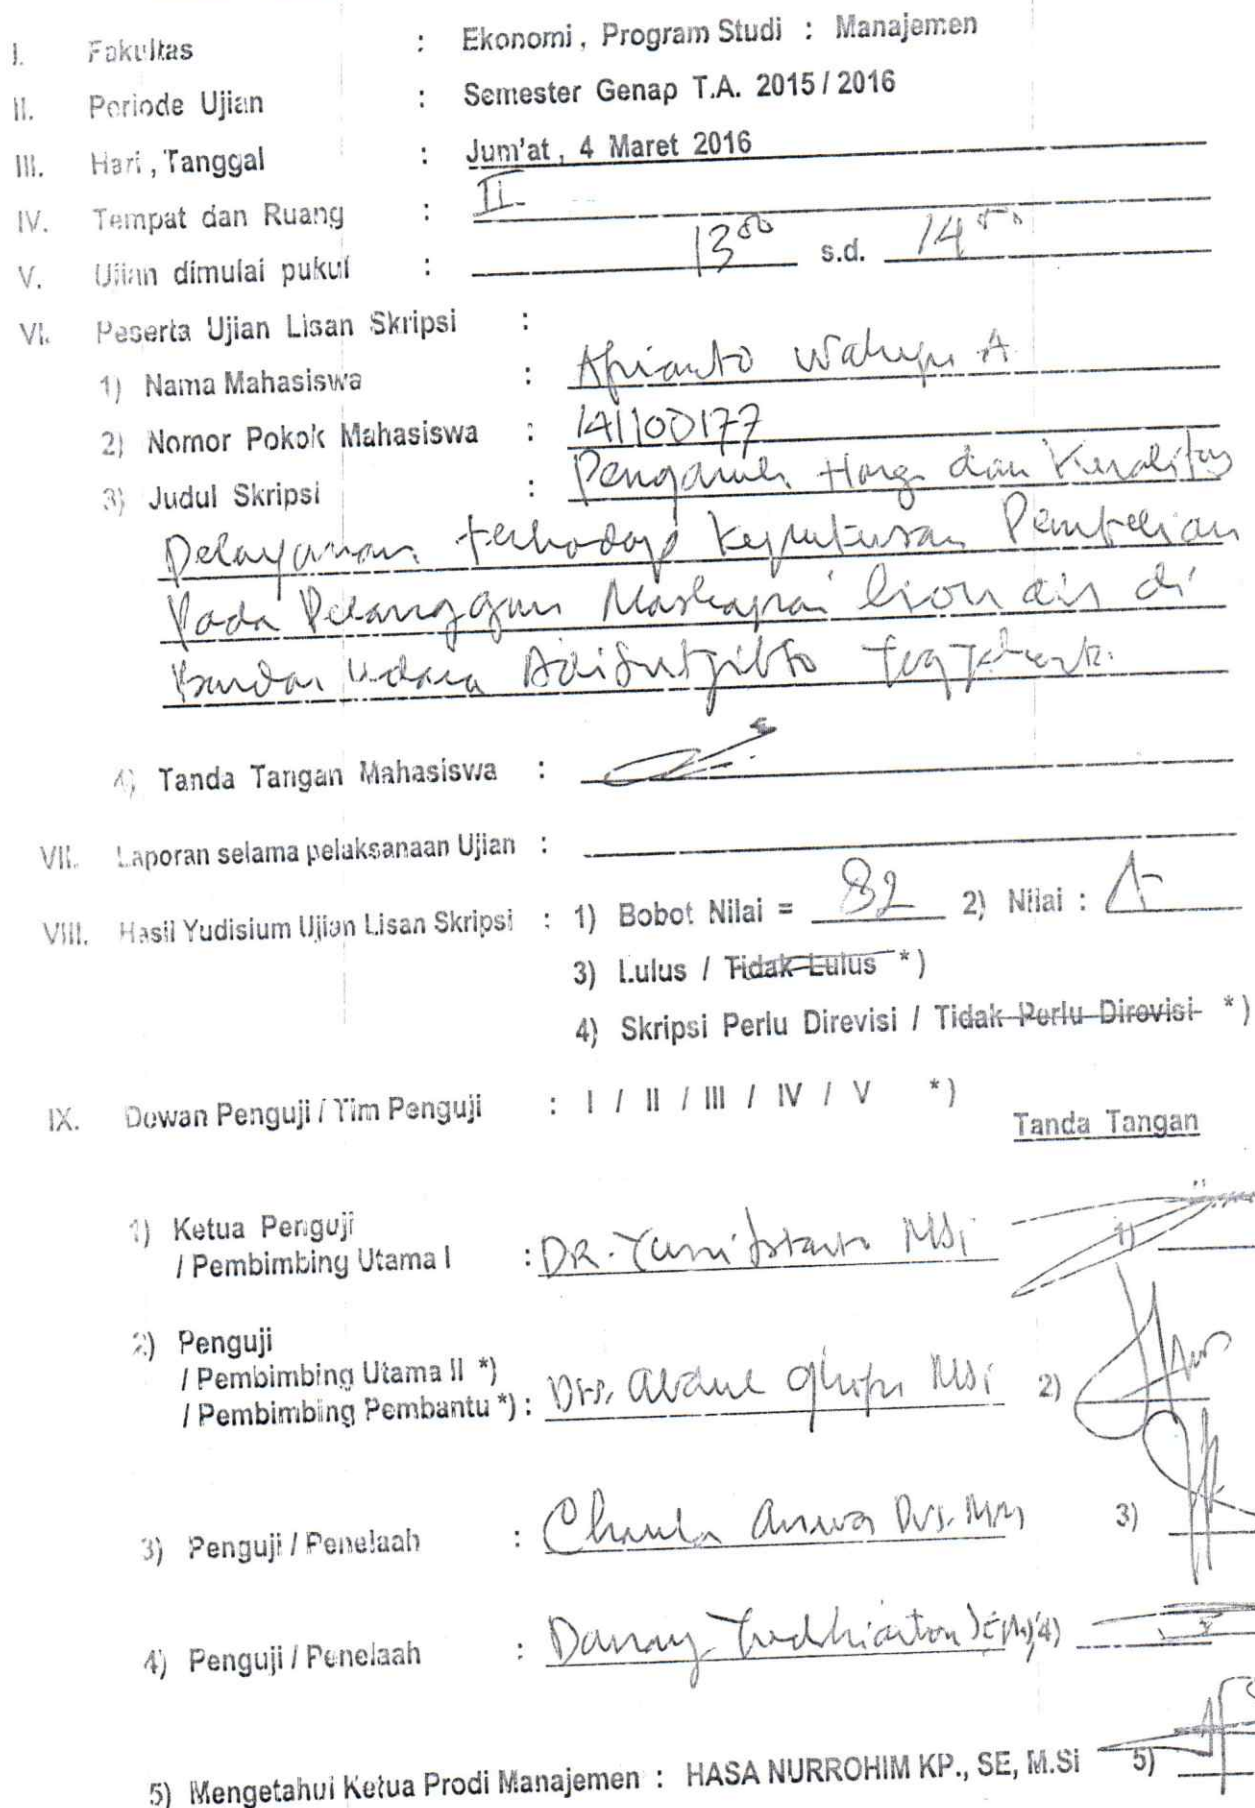 I. Fakultas : Ekonomi, Program Studi : Manajemen
II. Periode Ujian : Semester Genap T.A. 2015 / 2016
III. Hari, Tanggal : Jum'at, 4 Maret 2016
IV. Tempat dan Ruang : II
V. Ujian dimulai pukul : 13 00 s.d. 14
VI. Peserta Ujian Lisan Skripsi :
1) Nama Mahasiswa : Aprianto Wahyu A
2) Nomor Pokok Mahasiswa : 141100177
3) Judul Skripsi : Pengaruh Harga dan Kualitas
Pelayanan terhadap Keputusan Pembelian
Pada Pelanggan Maskapai Lion air di
Bandar Udara Adisutjipto Yogyakarta.
4) Tanda Tangan Mahasiswa :
VII. Laporan selama pelaksanaan Ujian :
VIII. Hasil Yudisium Ujian Lisan Skripsi : 1) Bobot Nilai = 82 2) Nilai : A-
3) Lulus / Tidak Lulus *)
4) Skripsi Perlu Direvisi / Tidak Perlu Direvisi *)
IX. Dewan Penguji / Tim Penguji : I / II / III / IV / V *)
Tanda Tangan
1) Ketua Penguji
/ Pembimbing Utama I : DR. Yuni Istanto MSi 1)
2) Penguji
/ Pembimbing Utama II *)
/ Pembimbing Pembantu *) : Drs. Abdul Ghofar MSi 2)
3) Penguji / Penelaah : Anwar Drs. MM 3)
4) Penguji / Penelaah : Danang Yudhiantoro SE, M 4)
5) Mengetahui Ketua Prodi Manajemen : HASA NURROHIM KP., SE, M.Si 5)